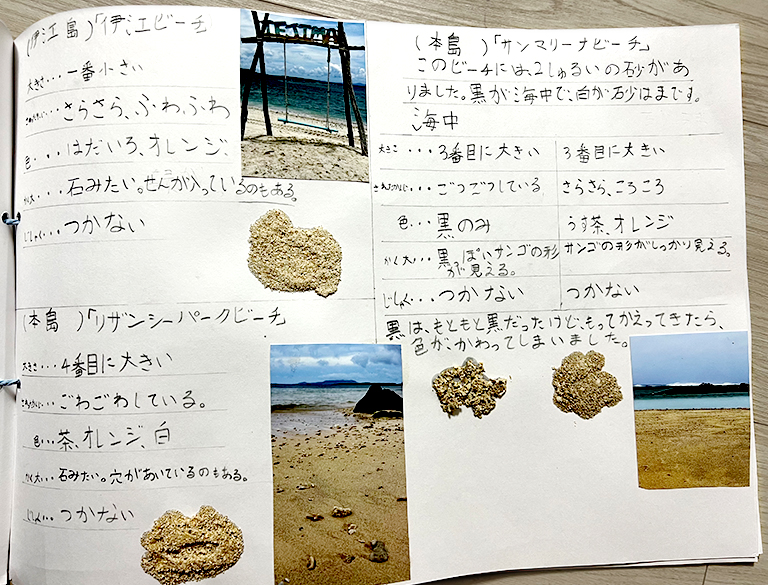 (伊江島)「伊江ビーチ」
大きさ・・・一番小さい
さわりごこち・・・さらさら、ふわふわ
色・・・はだいろ、オレンジ、
かく大・・・石みたい。せんが入っているのもある。
じしゃく・・・つかない
IEJIMA
(本島)「リザンシーパークビーチ」
大きさ・・・4番目に大きい
ごわごわしている。
色・・・茶、オレンジ、白
かく大・・・石みたい。穴があいているのもある。
じしゃく・・・つかない
(本島)「サンマリーナビーチ」
このビーチには、2しゅるいの砂があ
りました。黒が海中で、白が砂はまです。
海中
大きさ・・・3番目に大きい 3番目に大きい
ごつごつしている さらさら、ころころ
色・・・黒のみ うす茶、オレンジ
かく大・・・黒っぽいサンゴの形が見える。 サンゴの形がしっかり見える。
じしゃく・・・つかない つかない
黒は、もともと黒だったけど、もってかえってきたら、
色が、かわってしまいました。